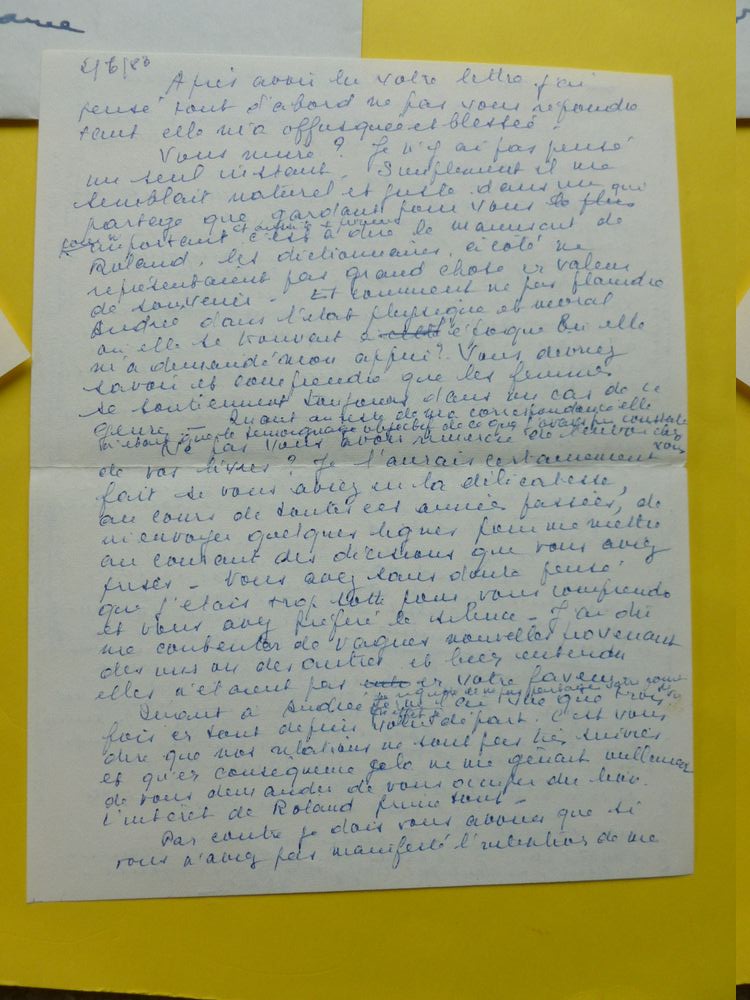 ance
2/6/80
Après avoir lu votre lettre j'ai
pensé tout d'abord ne pas vous répondre
tant elle m'a offusquée et blessée.
Vous nuire ? Je n'y ai pas pensé
un seul instant. Simplement il me
semblait naturel et juste dans un
partage que gardant pour vous le plus
important c'est à dire le manuscrit de
Roland, les dictionnaires, à côté ne
représentaient pas grand chose en valeur
de souvenir. Et comment ne pas plaindre
Andrée dans l'état physique et moral
où elle se trouvait à l'époque où elle
m'a demandé mon appui ? Vous devriez
savoir et comprendre que les femmes
se soutiennent toujours dans un cas de ce
genre - Quant au reste de ma correspondance elle
n'était que le témoignage objectif de ce que j'avais pu constater
Ne pas vous avoir remercié de l'envoi
de vos livres ? Je l'aurais certainement
fait si vous aviez eu la délicatesse,
au cours de toutes ces années passées, de
m'envoyer quelques lignes pour me mettre
au courant des décisions que vous aviez
prises - Vous avez sans doute pensé
que j'étais trop sotte pour vous comprendre
et vous avez préféré le silence - J'ai dû
me contenter de vagues nouvelles provenant
des uns ou des autres et bien entendu
elles n'étaient pas en votre faveur
Quant à Andrée je ne l'ai vue que trois
fois en tout depuis votre départ. C'est vous
dire que nos relations ne sont pas très suivies
et qu'en conséquence cela ne me gênait nullement
de vous demander de vous occuper du livre.
L'intérêt de Roland prime tout -
Par contre je dois vous avouer que si
vous n'aviez pas manifesté l'intention de me